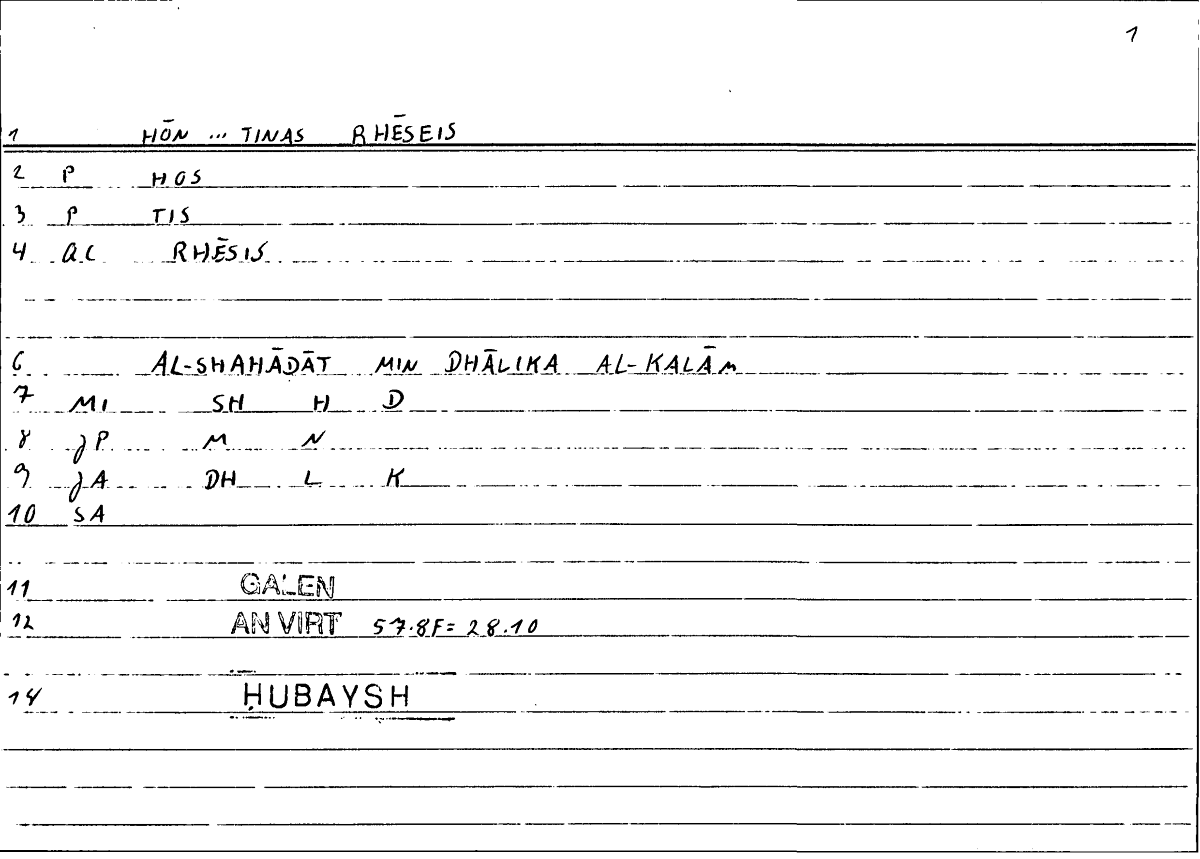 1
1 HŌN ... TINAS RHĒSEIS
2 P HOS
3 P TIS
4 QL RHĒSIS
6 AL-SHAHĀDĀT MIN DHĀLIKA AL-KALĀM
7 MI SH H D
8 JP M N
9 JA DH L K
10 SA
11 GALEN
12 AN VIRT 57.8F = 28.10
14 ḤUBAYSH